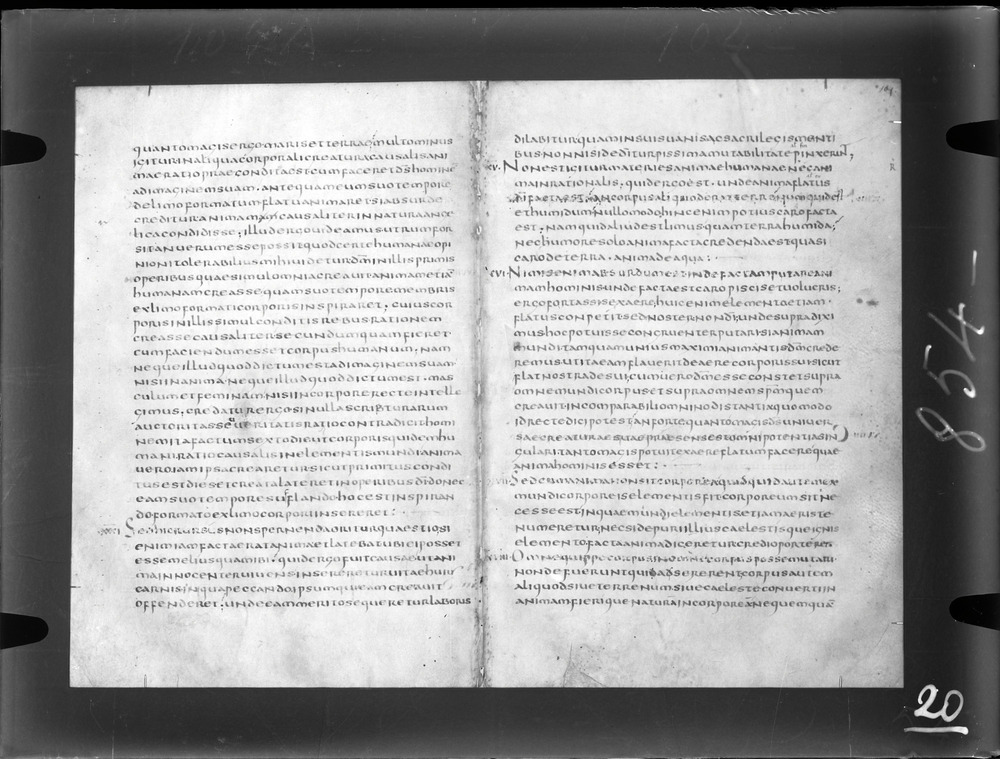 quantomagisergomarisetterrae multominus
igiturinaliquacorporalicreaturacausalisani
maeratiopraeconditaestcumfaceretdshomine
adimaginemsuam · antequameumsuotempore
delimoformatumflatuanimaretsiabsurde
creditur
licacondidisse; illudergouideamusutrumfor
sitanuerumessepossitquodcertehumanaeopi
nionitolerabiliusmihiuideturdminillisprimis
operibusquaesimulomniacreauitanimametia
humanamcreassequamsuotemporemembris
exlimoformaticorporisinspiraret, cuiuscor
porisinillissimulconditisrebusrationem
creassecausalitersecundumquamfieret
cumfaciendumessetcorpushumanum, nam
nequeilludquoddictumestadimaginemsuam
nisiinanima · nequeilludquoddictumest · mas
culumetfeminamnisiincorporerecteintelle
gimus, credaturergosinullascribturarum
auctoritasseueritatisratiocontradicithomi
nemitafactumsextodieutcorporisquidemhu
maniratiocausalisinelementismundianima
ueroiamipsacrearetursicutprimituscondi
tusestdiesetcreatalateretinoperibusdidonec
eamsuotemporesufflandohocestinspiran
doformatoexlimocorporiinsereret :·
Sednecrursusnonspernendaorturquaestiosi
enimiamfactaeratanimaetlatebatubieiposset
essemeliusquamibi, quidergofuitcausaeutani
mainnocenteruiuensinsereretururitaehuiu
carnisinquapeccandoipsumquieamcreauit
offenderet; undeeammeritosequereturlaborus
dilabiturquaminsuisuanisacsacrilegismenti
busnonnisideditturpissimamutabilitatepinxerunt,
xv. Nonestigiturmateriesanimaehumanaenecani
mainrationalis, quidergoest · undeanimaflatus
ethumidum nullomodo, hincenimpotiuscarofacta
est, namquidaliudestlimusquamterrahumida;
nechumoresoloanimafactacredendaestquasi
carodeterra · animadeaqua :·
xvi. Nimisenimabsurdumestindefactamputareani
mamhominisundefactaestcaropiscisetuolucris;
ergofortassisexaere, huicenimelementoetiam ·
flatusconpetitsednosternondi, undesupradixi
mushocpotuissecongruenterputarisianimam
munditamquamuniusmaximianimantisdmcrede
remusutitaeamflaueritdeaerecorporissuisicut
flatnostradesui, cumuerodmesseconstetsupra
omnemundicorpusetsupraomnemspmquem
creauitincomparabiliomninodistantiaquomodo
idrectedicipotestanfortequantomagisdsuniuer
saecreaturaesuaepraesensestomnipotentiasin
gularitantomagispotuitexaereflatumfacerequae
animahominisesset :·
xvii. Sedcumanimanonsitcorporeaquidquidautemex
mundicorporeiselementisfitcorporeumsitne
cesseestinquaemundielementisetiamaeriste
numereturnecsidepuriilliuscaelestisqueignis
elementofactaanimadicereturcredioporteret
xviii. Omnequippecorpusinomnecorpuspossemutari
nondefueruntquiadsererent, corpusautem
aliquodsiueterrenumsiuecaelesteconuertiin
animamfierique naturaincorporeanequemqua
854 –
20